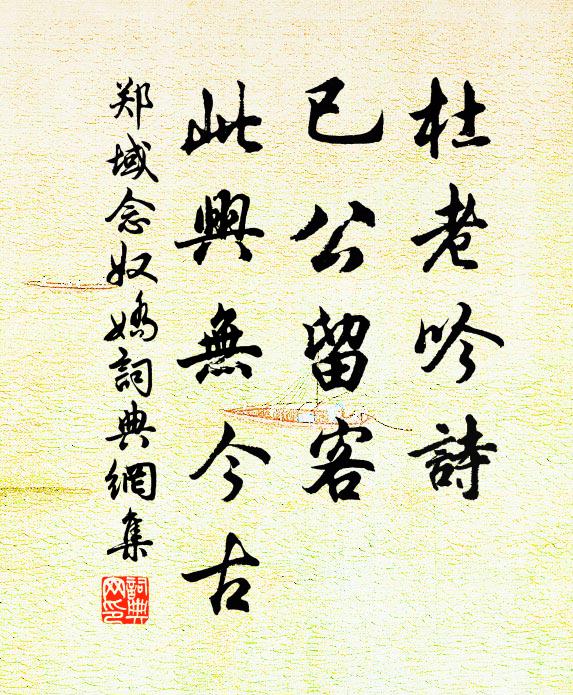 杜老吟詩
已公留客
此興無今古
郑域念奴嬌詞典網集
詞典
网印